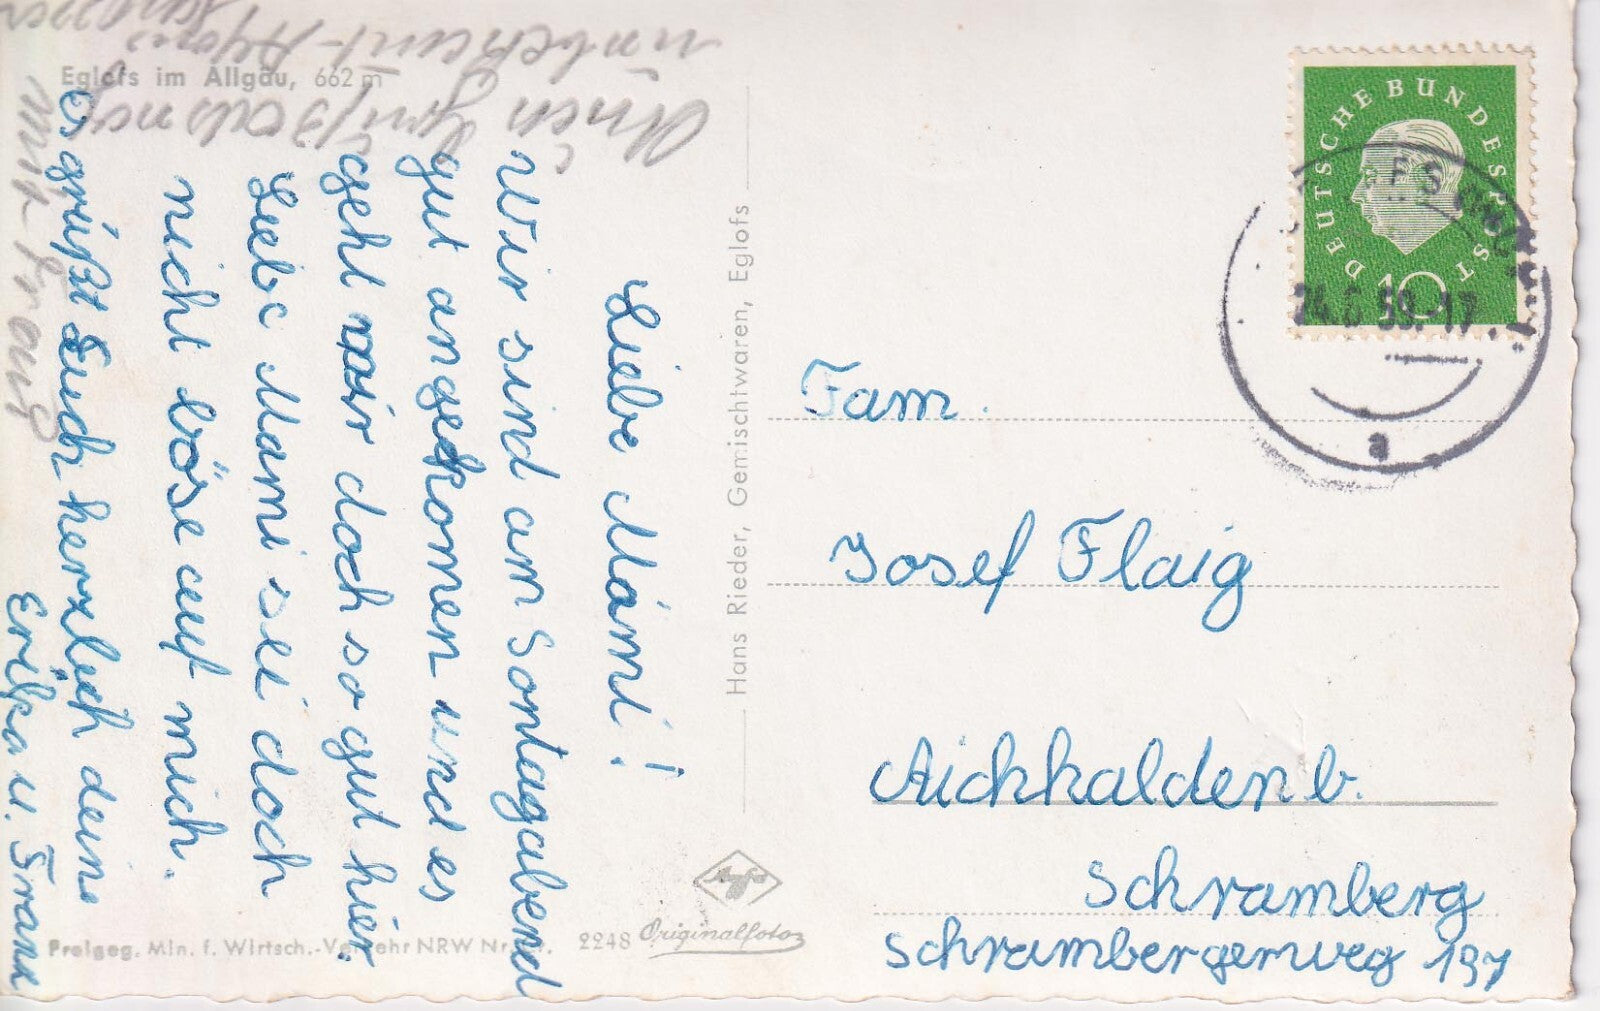 Eglofs im Allgäu, 662 m
Liebe Mami!
Wir sind am Sontagabend
gut angekomen und es
geht mir doch so gut hier.
Liebe Mami sei doch
nicht böse auf mich.
Es grüßt Euch herzlich deine
Erika u. Frank
Hans Rieder, Gemischtwaren, Eglofs
Freigeg. Min. f. Wirtsch.-Verkehr NRW Nr.
2248
Agfa
Originalfoto
DEUTSCHE BUNDESPOST
10
59.-17
a
Fam.
Josef Flaig
Aichhalden b.
Schramberg
Schrambergerweg 197